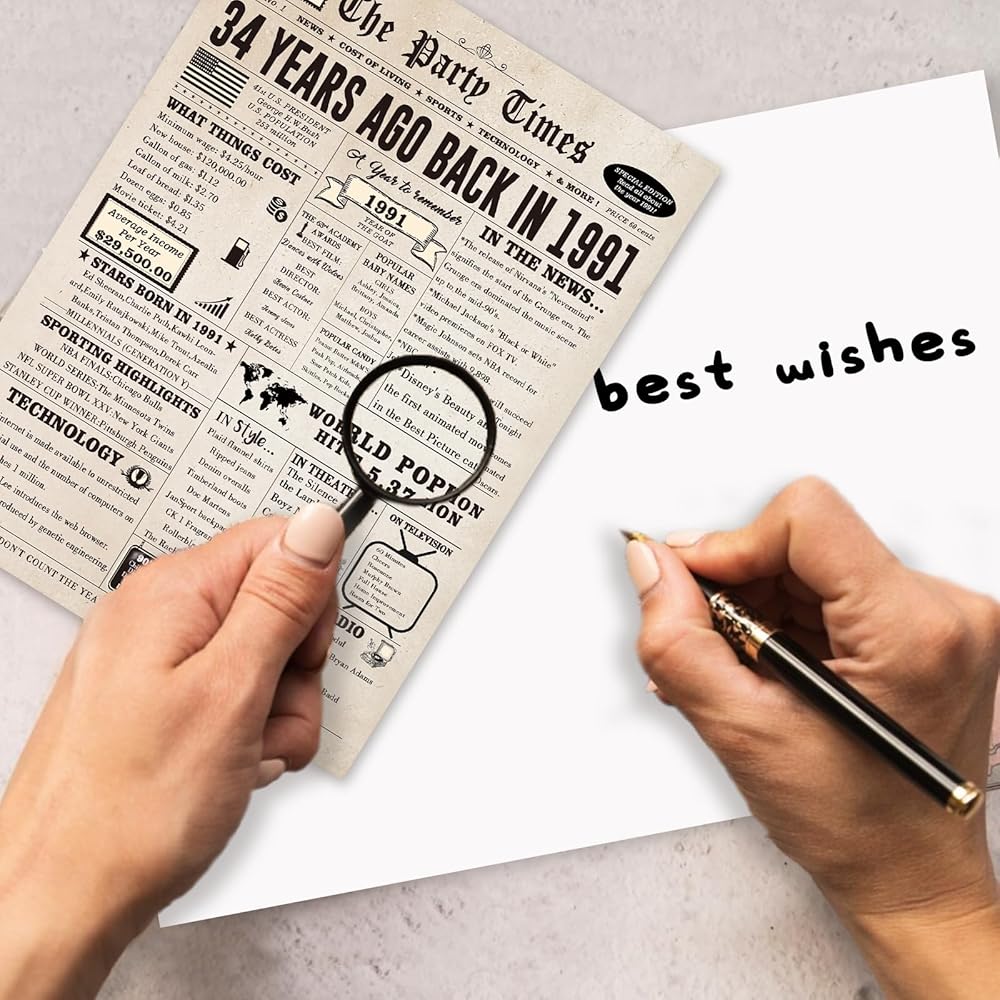 No. 1
The Party Times
NEWS ★ COST OF LIVING ★ SPORTS ★ TECHNOLOGY ★ & MORE!
PRICE 60 cents
34 YEARS AGO BACK IN 1991
SPECIAL EDITION
Read all about
the year 1991!
41st U.S. PRESIDENT
George H.W.Bush
U.S. POPULATION
253 million
WHAT THINGS COST
Minimum wage: $4.25/hour
New house: $120,000.00
Gallon of gas: $1.12
Gallon of milk: $2.70
Loaf of bread: $1.35
Dozen eggs: $0.85
Movie ticket: $4.21
Average Income
Per Year
$29,500.00
★ STARS BORN IN 1991 ★
Ed Sheeran,Charlie Puth,Kawhi Leon-
ard,Emily Ratajkowski,Mike Trout,Azealia
Banks,Tristan Thompson,Derek Carr
MILLENNIALS (GENERATION Y)
SPORTING HIGHLIGHTS
NBA FINALS:Chicago Bulls
WORLD SERIES:The Minnesota Twins
NFL SUPER BOWL XXV:New York Giants
STANLEY CUP WINNER:Pittsburgh Penguins
TECHNOLOGY
nternet is made available to unrestricted
ial use and the number of computers on
hes 1 million.
Lee introduces the web browser.
roduced by genetic engineering.
DON'T COUNT THE YEA
A Year to remember
1991
YEAR OF
THE GOAT
THE 63rd ACADEMY
AWARDS
BEST FILM:
Dances with Wolves
BEST
DIRECTOR:
Kevin Costner
BEST ACTOR:
Jeremy Irons
BEST ACTRESS
Kathy Bates
POPULAR
BABY NAMES
GIRLS
Ashley, Jessica
Brittany, Amanda
BOYS
Michael, Christopher,
Matthew, Joshua
POPULAR CANDY
IN THE NEWS...
"The release of Nirvana's "Nevermind"
signifies the start of the Grunge era. The
Grunge era dominated the music scene
up to the mid-90's.
"Michael Jackson's "Black or White"
video premieres on FOX TV.
"Magic Johnson sets NBA record for
career assists with 9,898.
Disney's Beauty a
the first animated mo
in the Best Picture ca
WORLD POP ION
HIT 5.37 ION
IN Style...
Plaid flannel shirts
Ripped jeans
Denim overalls
Timberland boots
Doc Martens
JanSport backpa
CK 1 Fragran
Rollerbl
The Rach
IN THEATE
The Silence
the Lam
ON TELEVISION
60 Minutes
Cheers
Roseanne
Murphy Brown
Full House
Home Improvement
Room for Two
DIO
Bryan Adams
best wishes